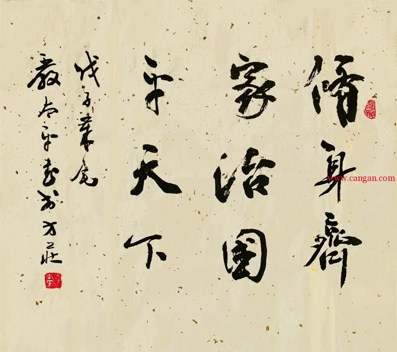 脩身齊
家治國
平天下
戊子
平書於方莊
www.cangan.com